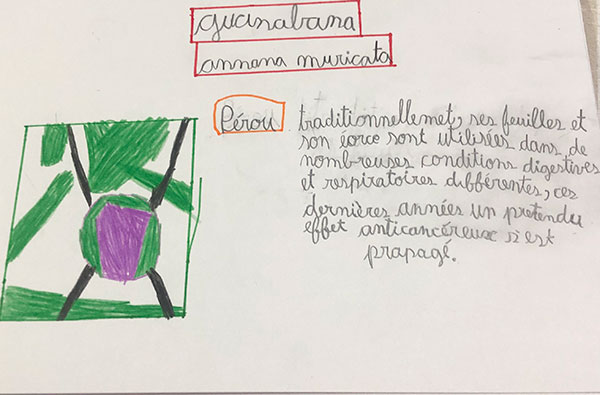 guanabana
annana muricata
Pérou traditionnellemet, ses feuilles et
son éorce sont utilisées dans de
nombreuses conditions digestives
et respiratoires différentes, ces
dernières années un pretendu
effet anticancéreux s'est
prapagé.